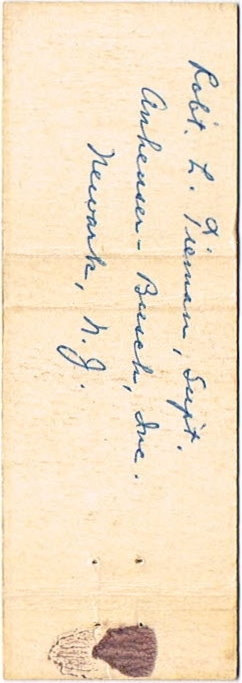 Robt. L. Tieman, Supt.
Anheuser-Busch, Inc.
Newark, N.J.